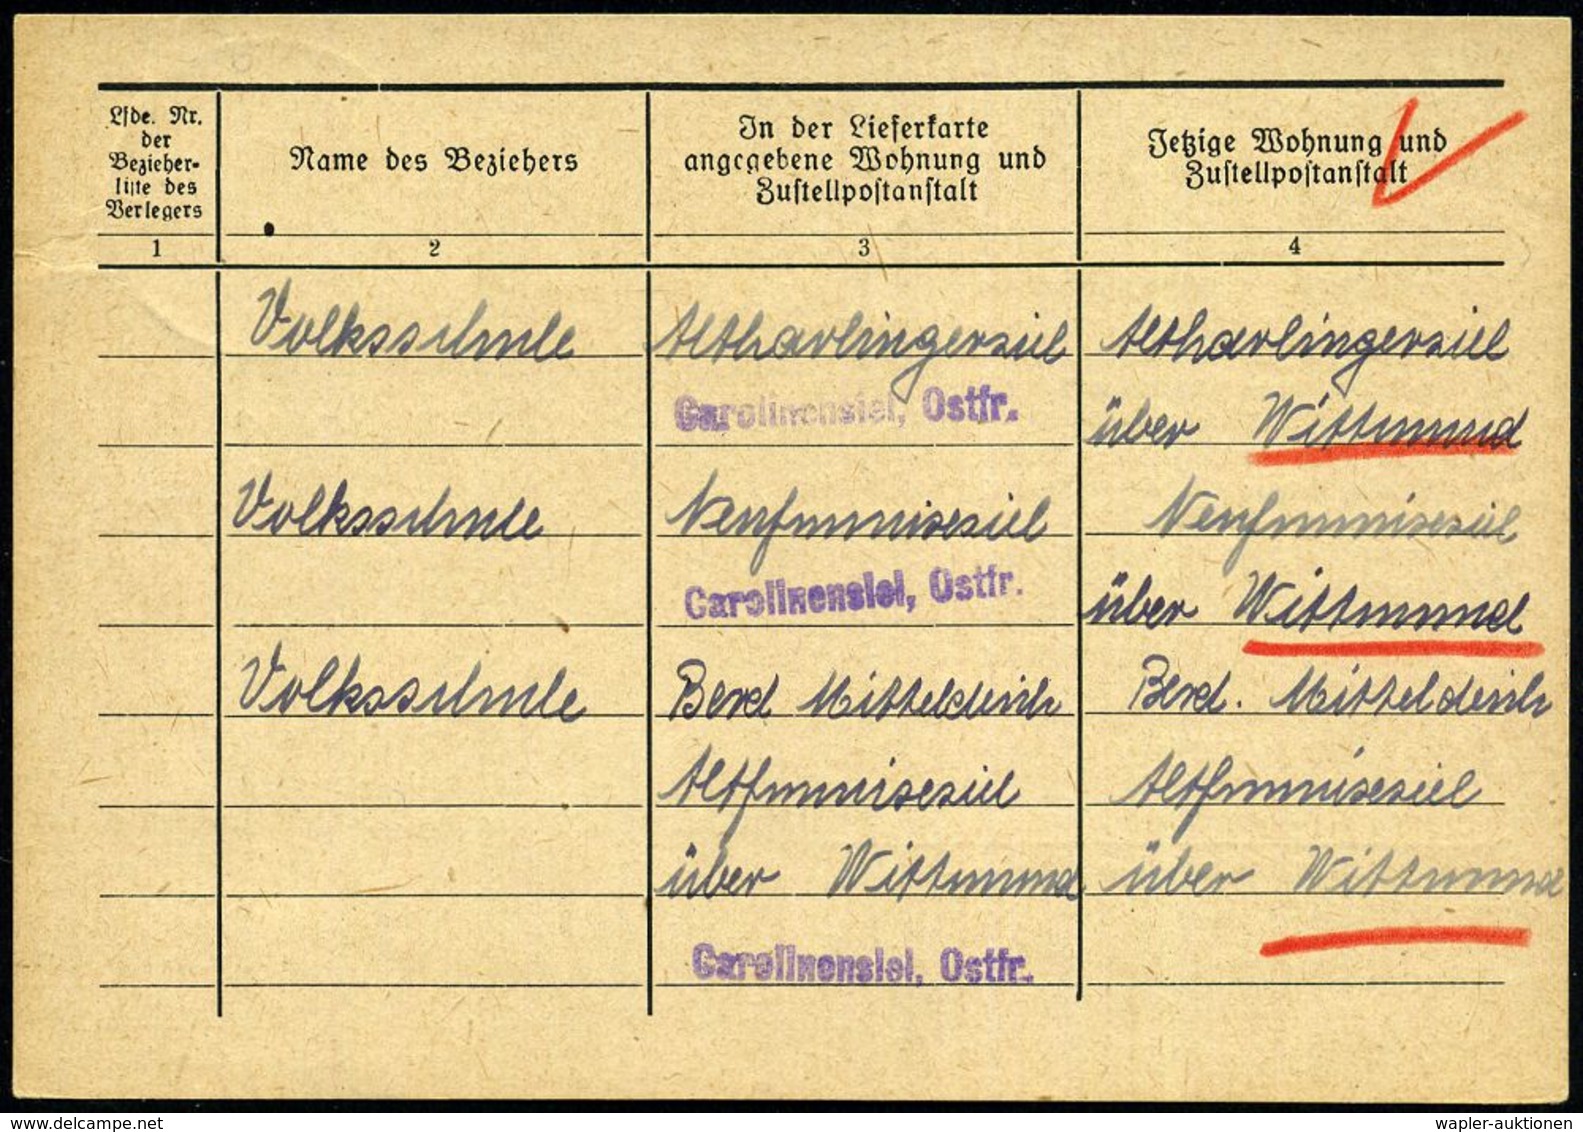 Lfde. Nr.
der
Bezieher-
liste des
Verlegers
Name des Beziehers
In der Lieferkarte
angegebene Wohnung und
Zustellpostanstalt
Jetzige Wohnung und
Zustellpostanstalt
1 2 3 4
Volksschule Altharlingersiel Altharlingersiel
Carolinensiel, Ostfr. über Wittmund
Volksschule Neufunnixsiel Neufunnixsiel
Carolinensiel, Ostfr. über Wittmund
Volksschule Berd Mitteldeich Berd. Mitteldeich
Altfunnixsiel Altfunnixsiel
über Wittmund über Wittmund
Carolinensiel, Ostfr.
www.delcampe.net
wapler-auktionen